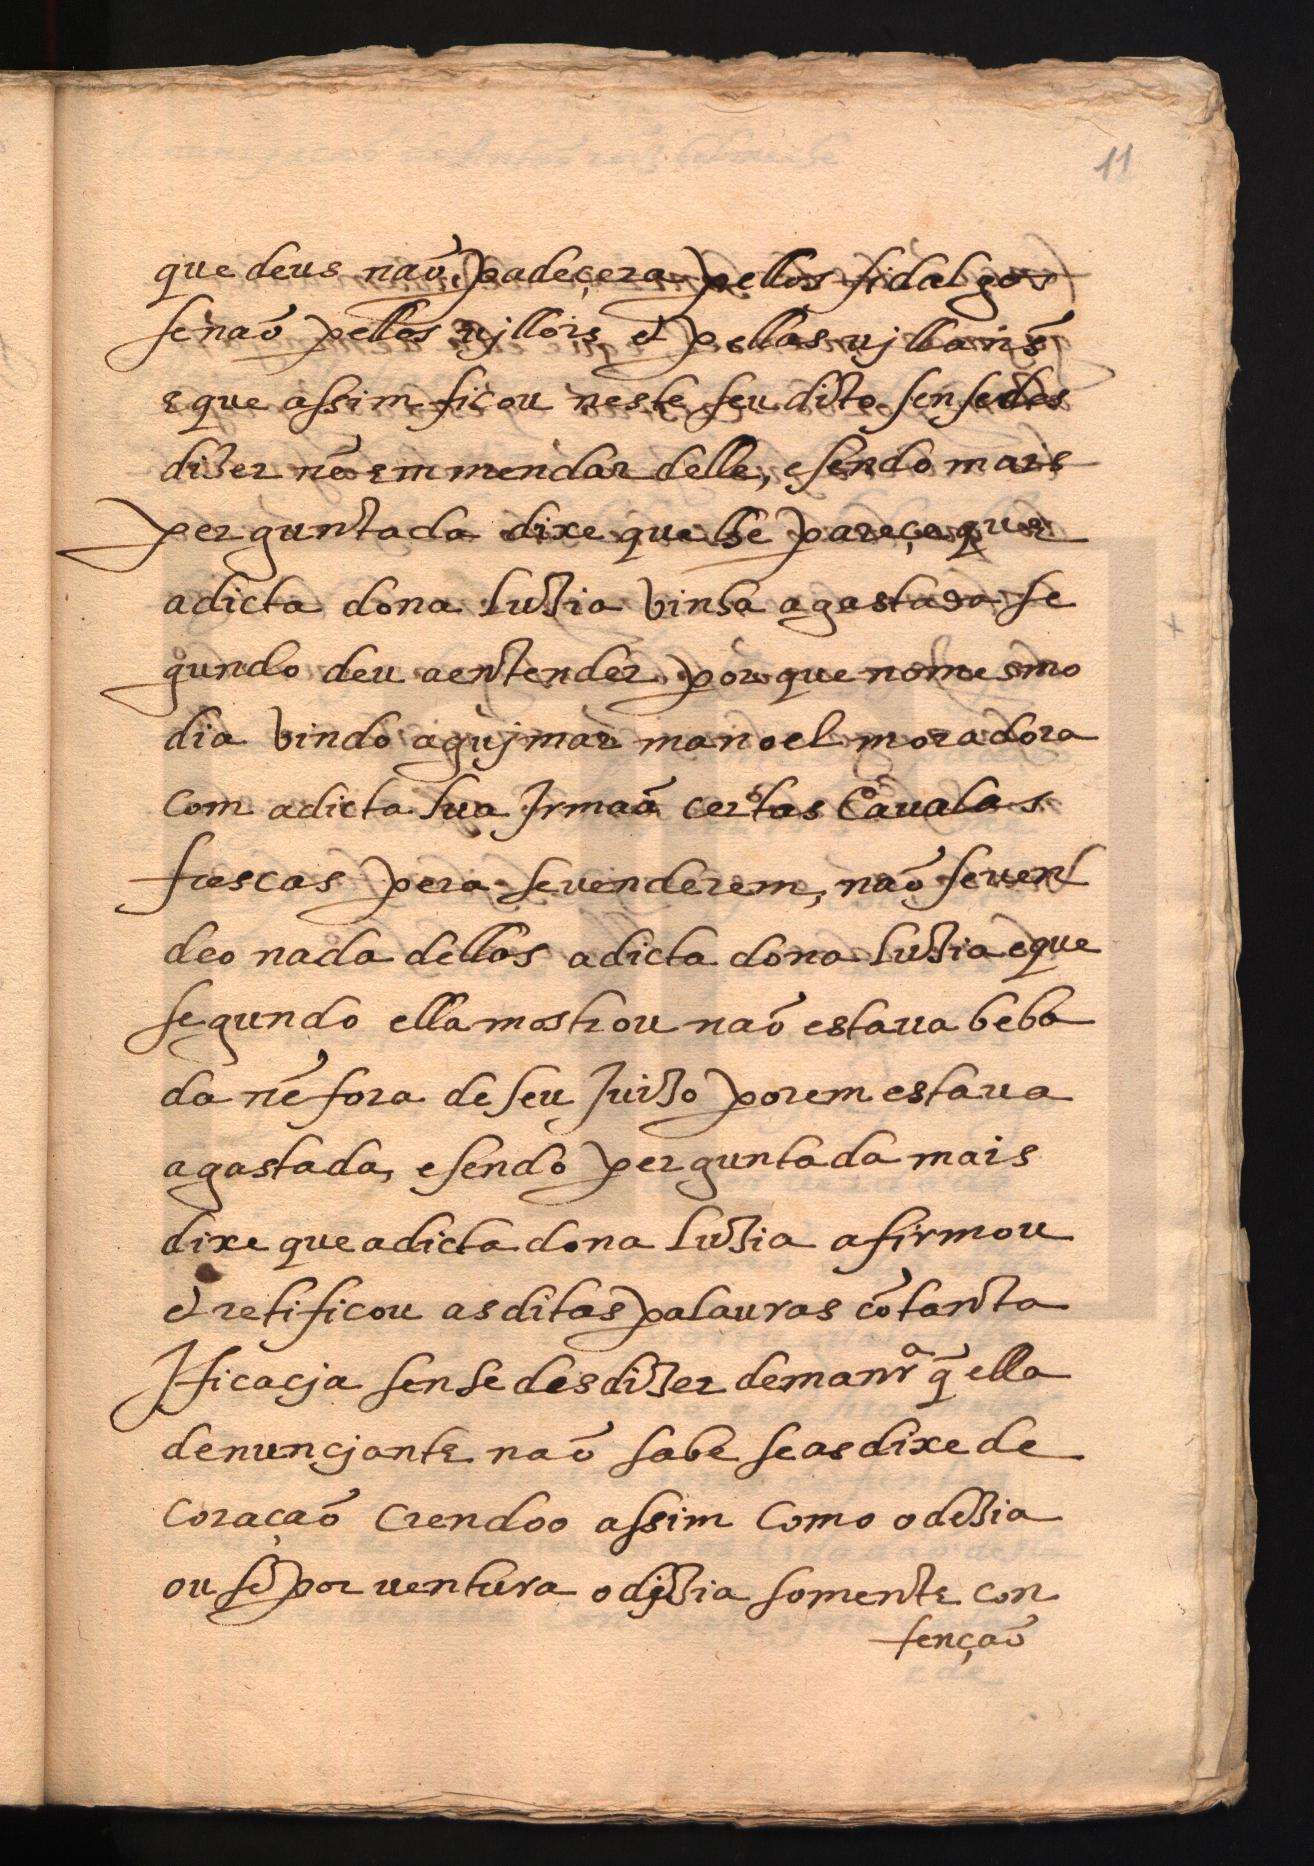 11
que deus naõ padeçera pellos fidalgos
senaõ pellos vjllõis e pellas vjllaïs
e que assim ficou neste seu dito sense des
dizer nẽ emmendar delle, e sendo mais
perguntada dixe que lhe pareçe que
a dicta dona luzia vinha agastada se
gundo deu a entender, por que no mesmo
dia vindo a gujmar manoel moradora
com a dicta sua Jrmaã certas Cavalas
frescas pera se venderem, naõ se ven
deo nada dellas a dicta dona luzia e que
segundo ella mostrou naõ estava beba
da nẽ fora de seu Juizo porem estava
agastada, e sendo perguntada mais
dixe que a dicta dona luzia afirmou
e retificou as ditas palauras cõ tanta
Ificacja sense desdizer de manrª q̃ ella
denuncjante naõ sabe se as dixe de
coraçaõ crendoo assim como o dezia
ou se por ventura o djzia somente con
tençaõ